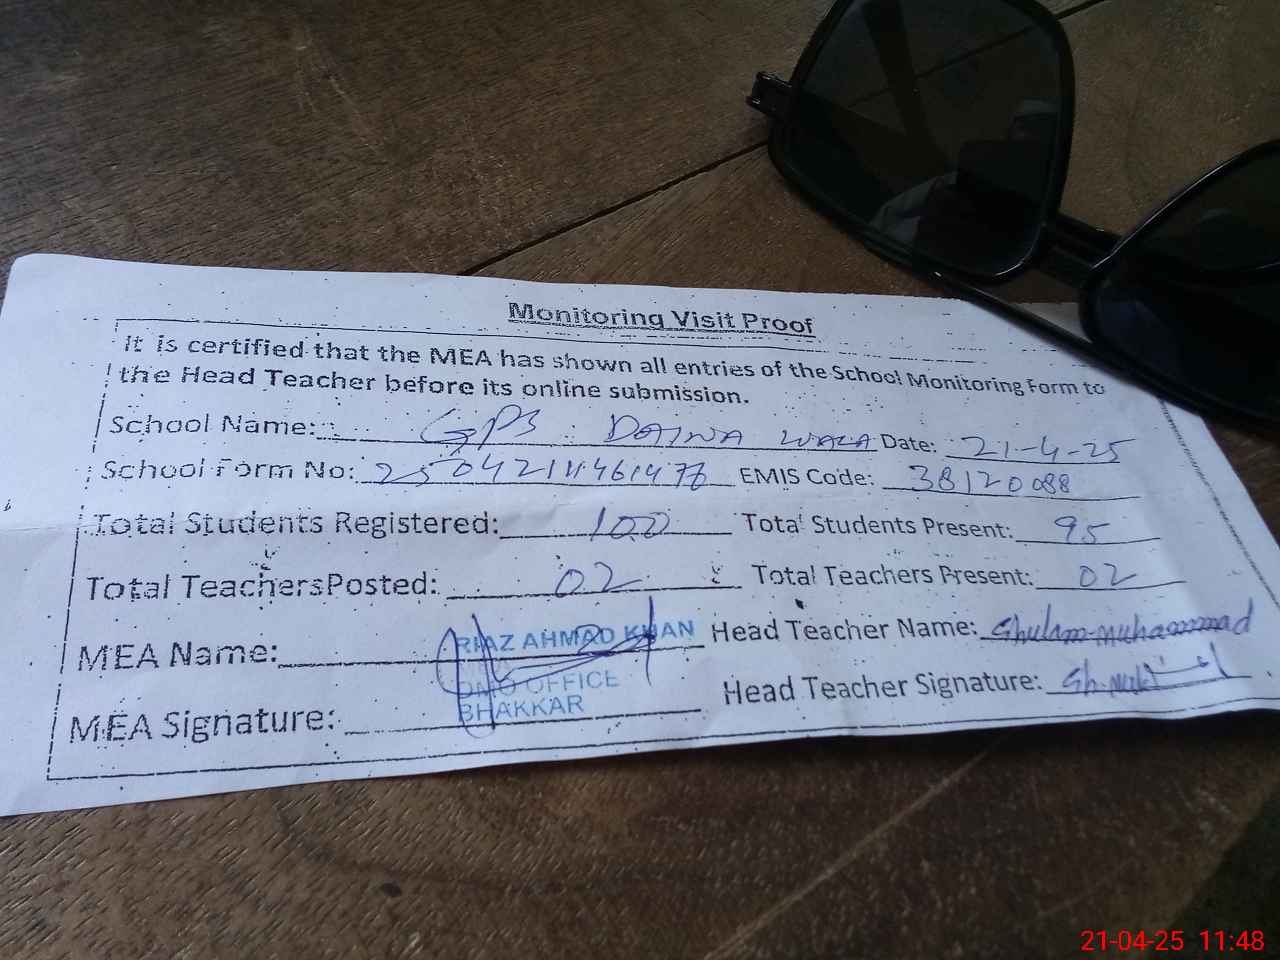 Monitoring Visit Proof
It is certified that the MEA has shown all entries of the School Monitoring Form to
the Head Teacher before its online submission.
School Name: GPS DAJNA WALA Date: 21-4-25
School Form No: EMIS Code: 38120088
Total Students Registered: 100 Total Students Present: 95
Total Teachers Posted: 02 Total Teachers Present: 02
MEA Name: RIAZ AHMAD KHAN Head Teacher Name: Ghulam Muhammad
DMO OFFICE
BHAKKAR
MEA Signature: Head Teacher Signature:
21-04-25 11:48